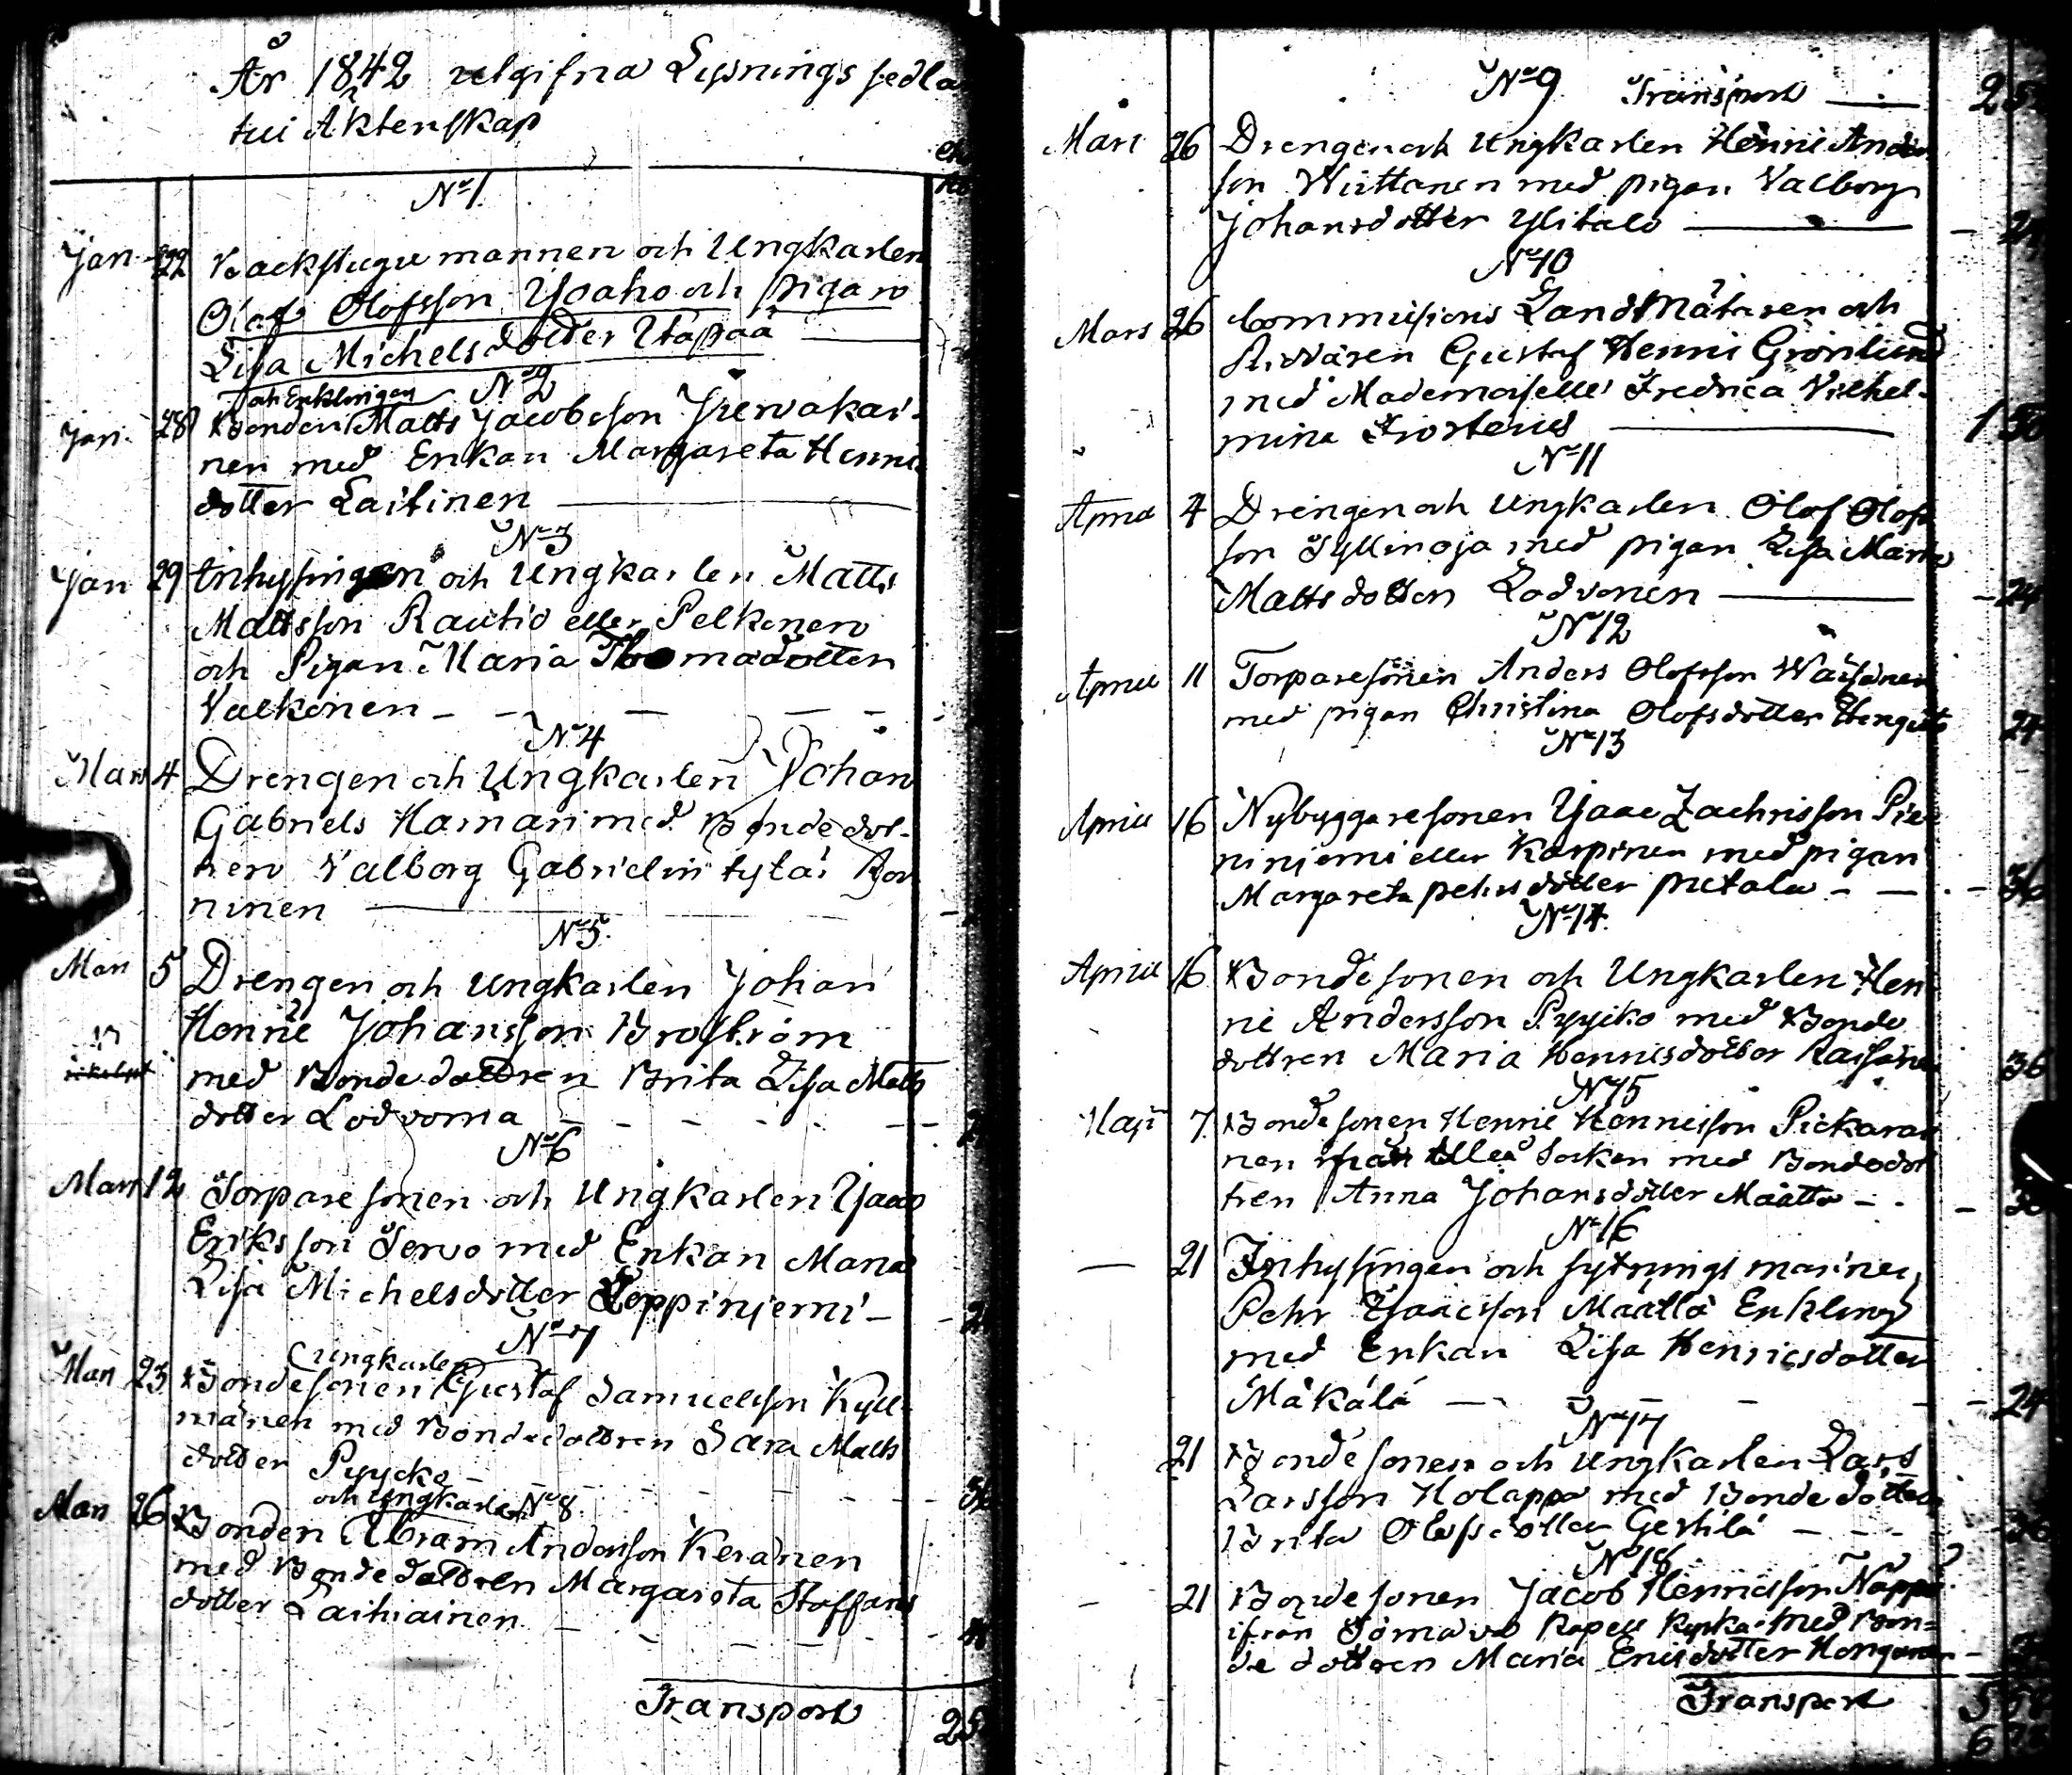 År 1842 utgifna Lysnings sedla
till Äktenskap
No 1
Jan 22 Backstugu mannen och Ungkarlen
Olof Olofsson Yoaho och pigan
Lisa Michelsdotter Utapää
och Enklingen No 2
Jan 28 Bonden Matts Jacobsson
nen med Enkan Margareta Henric
dotter Laitinen
No 3
Jan 29 Inhysingen och Ungkarlen Matts
Mattsson Rautio eller Pelkonen
och Pigan Maria Thomadotter
Valkonen
No 4
Mars 4 Drengen och Ungkarlen Johan
Gabriels Hamari med Bondedot-
tren Valborg Gabrielin tytär
ninen
No 5
Mars 5 Drengen och Ungkarlen Johan
Henric Johansson Broström
med Bondedottren Brita Lisa Matts
dotter Lodvoma
No 6
Mars 12 Torpare sonen och Ungkarlen Isaac
Eriksson Servo med Enkan Maria
Lisa Michelsdotter Leppiniemi
No 7
ungkarlen
Mars 23 Bondesonen Gustaf Samuelsson Kyll-
mänen med Bondedottren Sara Matts
dotter Pyycko
och Ungkarlen No 8
Mars 26 Bonden Abram Andersson Keränen
med Bondedottren Margareta Staffans
dotter Laihiainen
Transport 25
No 9 Transport
Mars 26 Drengen och Ungkarlen Henric Anders
son Wirttanen med pigan Valborg
Johansdotter Ylitalo
No 10
Mars 26 Commissions LandtMätaren och
Gustaf Henric Grönlund
med Mademoiselle Fredrica Vilhel-
mina Frosterus 1 50
No 11
April 4 Drengen och Ungkarlen Olof Olofs
son Tyllinoja med pigan Lisa Maria
Mattsdotter Lodvonen 24
No 12
April 11 Torparesonen Anders Olofsson Waisänen
med pigan Christina Olofsdotter 24
No 13
April 16 Nybyggaresonen Isaac Zachrisson Pie
niniemi eller Karpinen med pigan
Margareta Pehrsdotter Pietala 36
No 14
April 16 Bondesonen och Ungkarlen Hen
ric Andersson Pyyiko med Bonde
dottren Maria Henricsdotter Raisänen 36
No 15
Maji 7 Bondesonen Henric Henricsson Pickarai
nen från Uleå Socken med Bondedot
tren Anna Johansdotter Määttä
No 16
21 Inhysingen och sytnings mannen
Pehr Isaacsson Määttä Enkling
med Enkan Lisa Henricsdotter
Mäkälä 24
No 17
21 Bondesonen och Ungkarlen Lars
Larsson Holappa med Bondedottren
Brita Olofsdotter Gerhilä 36
No 18
21 Bondesonen Jacob Henricsson Näppä
ifrån Kapell med Bon-
de dottren Maria Ericsdotter Honganen
Transport